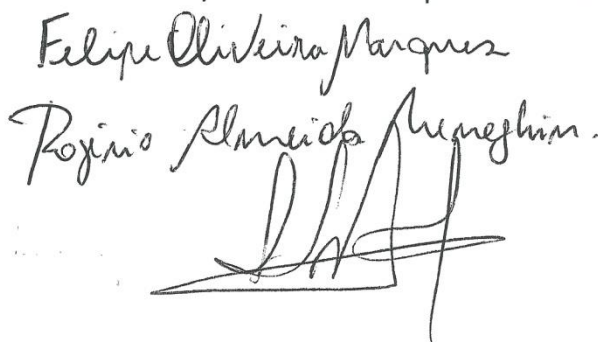 Felipe Oliveira Marques
Rogério Almeida Meneghin.